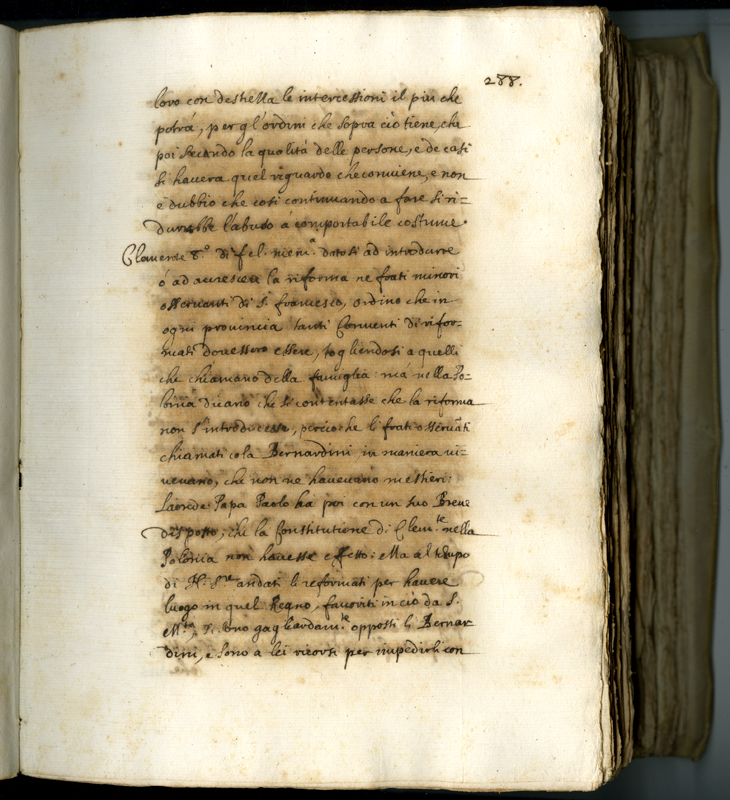 288.
loro con destrezza le intercessioni il piu che
potrá, per gl'ordini che sopra ciò tiene, che
poi secondo la qualitá delle persone, e de casi
si havera quel riguardo che conviene, e non
è dubbio che cosi continuando a fare si ri=
durrebbe l'abuso á comportabile costume.
Clemente 8.º di fel. mem.ª datosi ad introdurre
ó ad accrescere la riforma ne frati minori
osservanti di S. francesco, ordinò che in
ogni provincia tanti Conventi di rifor=
mati dovessero essere, togliendosi a quelli
che chiamano della famiglia: má nella Po=
lonia dicano che si contentasse che la riforma
non s'introducesse, percioche li frati osservãti
chiamati cola Bernardini in maniera vi=
vevano, che non ne havevano mestieri:
Papa Paolo ha poi con un suo Breve
disposto, che la Constitutione di Clem.te nella
Polonia non havesse effetto: Ma al tempo
di andati li reformati per havere
luogo in quel Regno, favoriti in ciò da S.
M.tà, si sono gagliardam.te opposti li Bernar
dini, e sono a lei ricorsi per impedirli con